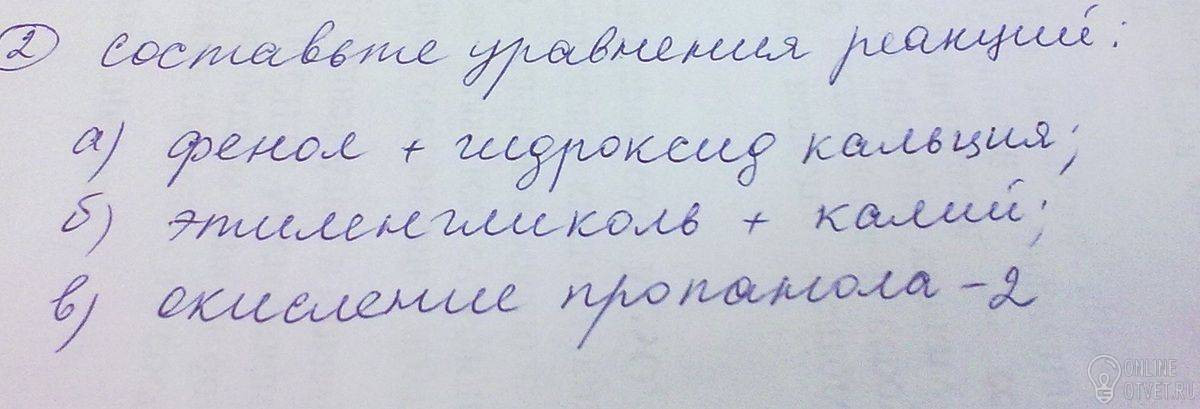 2 составьте уравнения реакций:
а) фенол + гидроксид кальция;
б) этиленгликоль + калий;
в) окисление пропанола-2
ONLINE
OTVET.RU